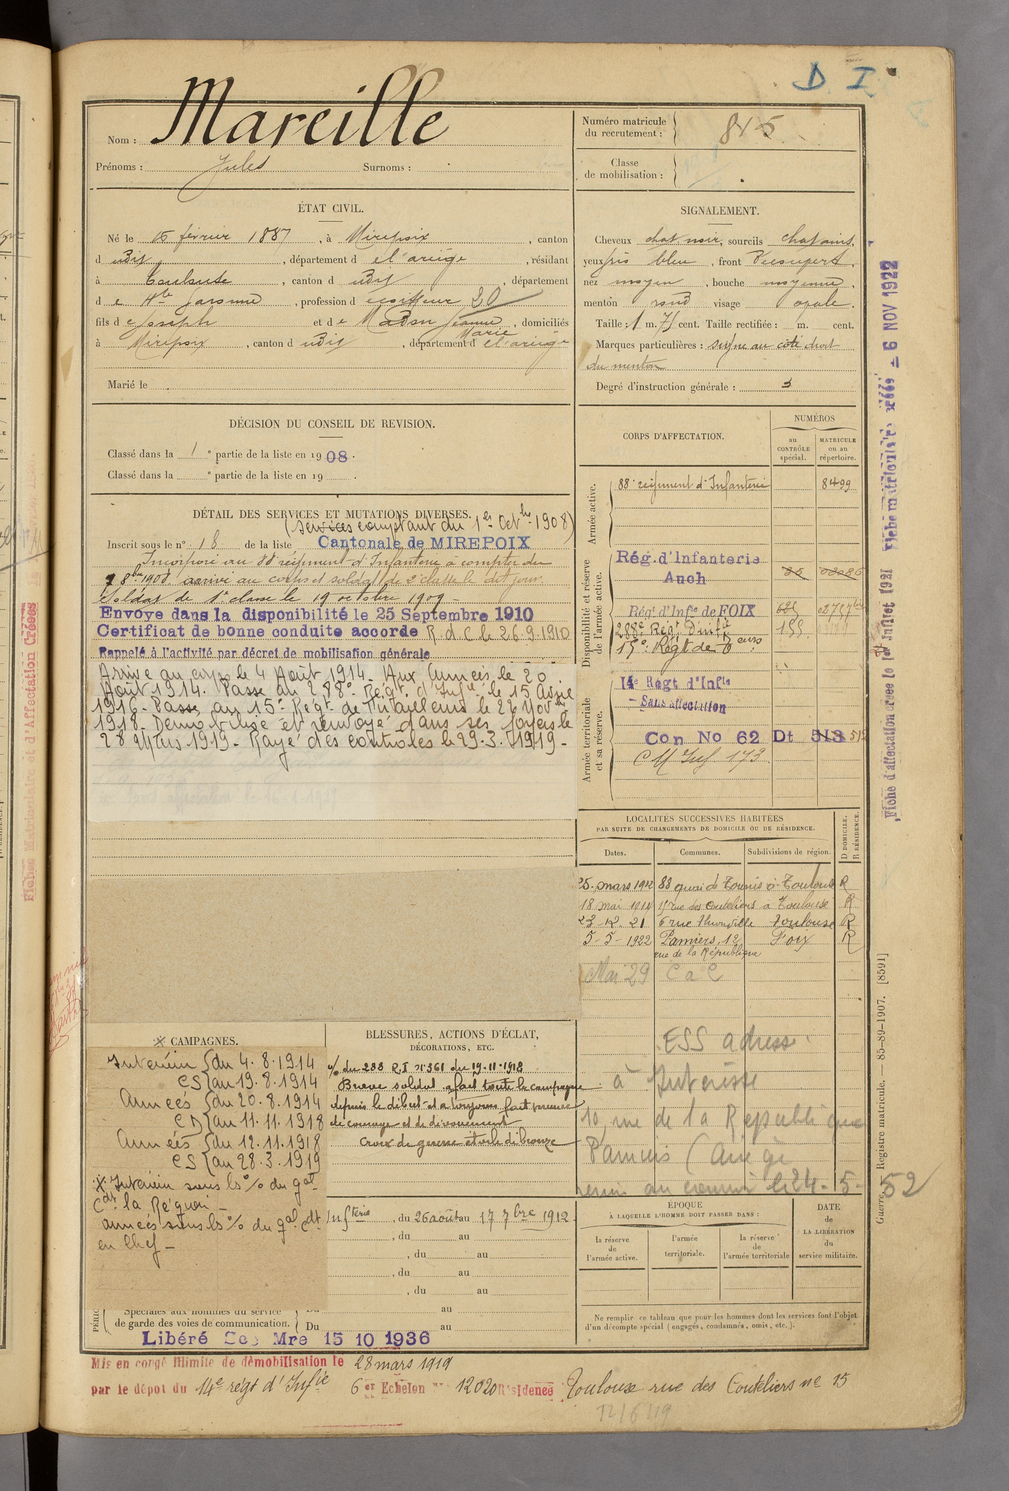 D. I
Nom : Mareille
Prénoms : Jules Surnoms :
Numéro matricule
du recrutement : 815
Classe
de mobilisation :
ÉTAT CIVIL.
Né le 15 février 1887, à Mirepoix, canton
d udit, département d e l'ariège, résidant
à Toulouse, canton d udit, département
d e Hte garonne, profession d e coiffeur 20
fils d e Joseph et d e Madon Jeanne Marie, domiciliés
à Mirepoix, canton d udit, département d e l'ariège
Marié le
SIGNALEMENT.
Cheveux chat noir, sourcils chatains,
yeux gris bleu, front découvert,
nez moyen, bouche moyenne,
menton rond visage ovale.
Taille : 1 m. 71 cent. Taille rectifiée : m. cent.
Marques particulières : signe au côté droit
du menton
Degré d'instruction générale : 3
DÉCISION DU CONSEIL DE REVISION.
Classé dans la 1e partie de la liste en 1908.
Classé dans la e partie de la liste en 19 .
DÉTAIL DES SERVICES ET MUTATIONS DIVERSES.
(Services comptant du 1er Octbre 1908)
Inscrit sous le n° 18 de la liste Cantonale de MIREPOIX
Incorporé au 88e régiment d'Infanterie à compter du
8bre 1908 arrivé au corps et soldat de 2e classe le dit jour
Soldat de 1e classe le 19 octobre 1909 -
Envoyé dans la disponibilité le 25 Septembre 1910
Certificat de bonne conduite accordé R.d.C. le 26.9.1910
Rappelé à l'activité par décret de mobilisation générale
Arrivé au corps le 4 Août 1914. Aux Armées le 20
Août 1914. Passé au 288e Régt d'Infie le 15 Avril
1916 - Passé au 15e Régt de Tirailleurs le 27 Novbre
1918. Démobilisé et renvoyé dans ses foyers le
28 Mars 1919 - Rayé des contrôles le 29.3.1919 -
CORPS D'AFFECTATION.
NUMÉROS
au CONTRÔLE spécial.
MATRICULE ou au répertoire.
Armée active.
88e régiment d'Infanterie 8499
Disponibilité et réserve de l'armée active.
Rég. d'Infanterie
Auch
Régt d'Infie de FOIX
288e Régt d'Infie
15e Régt de Teurs
Armée territoriale et sa réserve.
14e Régt d'Infie
Sans affectation
Con No 62 Dt 513 512
C M Inf 173
Fiche d'affectation créée le 1er Juillet 1921 Fiche matriculaire créée le 6 NOV 1922
LOCALITÉS SUCCESSIVES HABITÉES
PAR SUITE DE CHANGEMENTS DE DOMICILE OU DE RÉSIDENCE.
Dates. Communes. Subdivisions de région. D DOMICILE. R RÉSIDENCE.
25 mars 1912 88 quai de Tounis à Toulouse R
18 mai 1912 17 rue des Couteliers à Toulouse R
23-12.21 6 rue Thionville Toulouse R
5-5-1922 Pamiers, 12, Foix R
rue de la République
Mai 29 C a C
ESS adresse
à Intéressé
10, rue de la République
Pamiers (Ariège
remis au courrier le 24-5-52
* CAMPAGNES.
Intérieur {du 4.8.1914
CS {au 19.8.1914
Armées {du 20.8.1914
CD {au 11.11.1918
Armées {du 12.11.1918
CS {au 28.3.1919
* Intérieur sous ls % du gal
Cdt la Région -
armées sous ls % du gal Cdt
en Chef -
BLESSURES, ACTIONS D'ÉCLAT,
DÉCORATIONS, ETC.
% du 288 R.I. n° 361 du 19-11-1918
Brave soldat a fait toute la campagne
depuis le début et a toujours fait preuve
de courage et de dévouement
Croix de guerre étoile de bronze
Infterie, du 26 août au 17 7bre 1912
, du au
, du au
, du au
, du au
Spéciales aux hommes du service
de garde des voies de communication.
Du au
Du au
ÉPOQUE
À LAQUELLE L'HOMME DOIT PASSER DANS :
la réserve de l'armée active.
l'armée territoriale.
la réserve de l'armée territoriale
DATE de LA LIBÉRATION du service militaire.
Ne remplir ce tableau que pour les hommes dont les services font l'objet
d'un décompte spécial (engagés, condamnés, omis, etc.).
Guerre. Registre matricule. 85-89-1907. [8591]
Libéré Mre 15 10 1936
Mis en congé illimité de démobilisation le 28 mars 1919
par le dépôt du 14e régt d'Infie 6er Echelon N° 12020 Résidence Toulouse rue des Couteliers n° 15
12/6/19